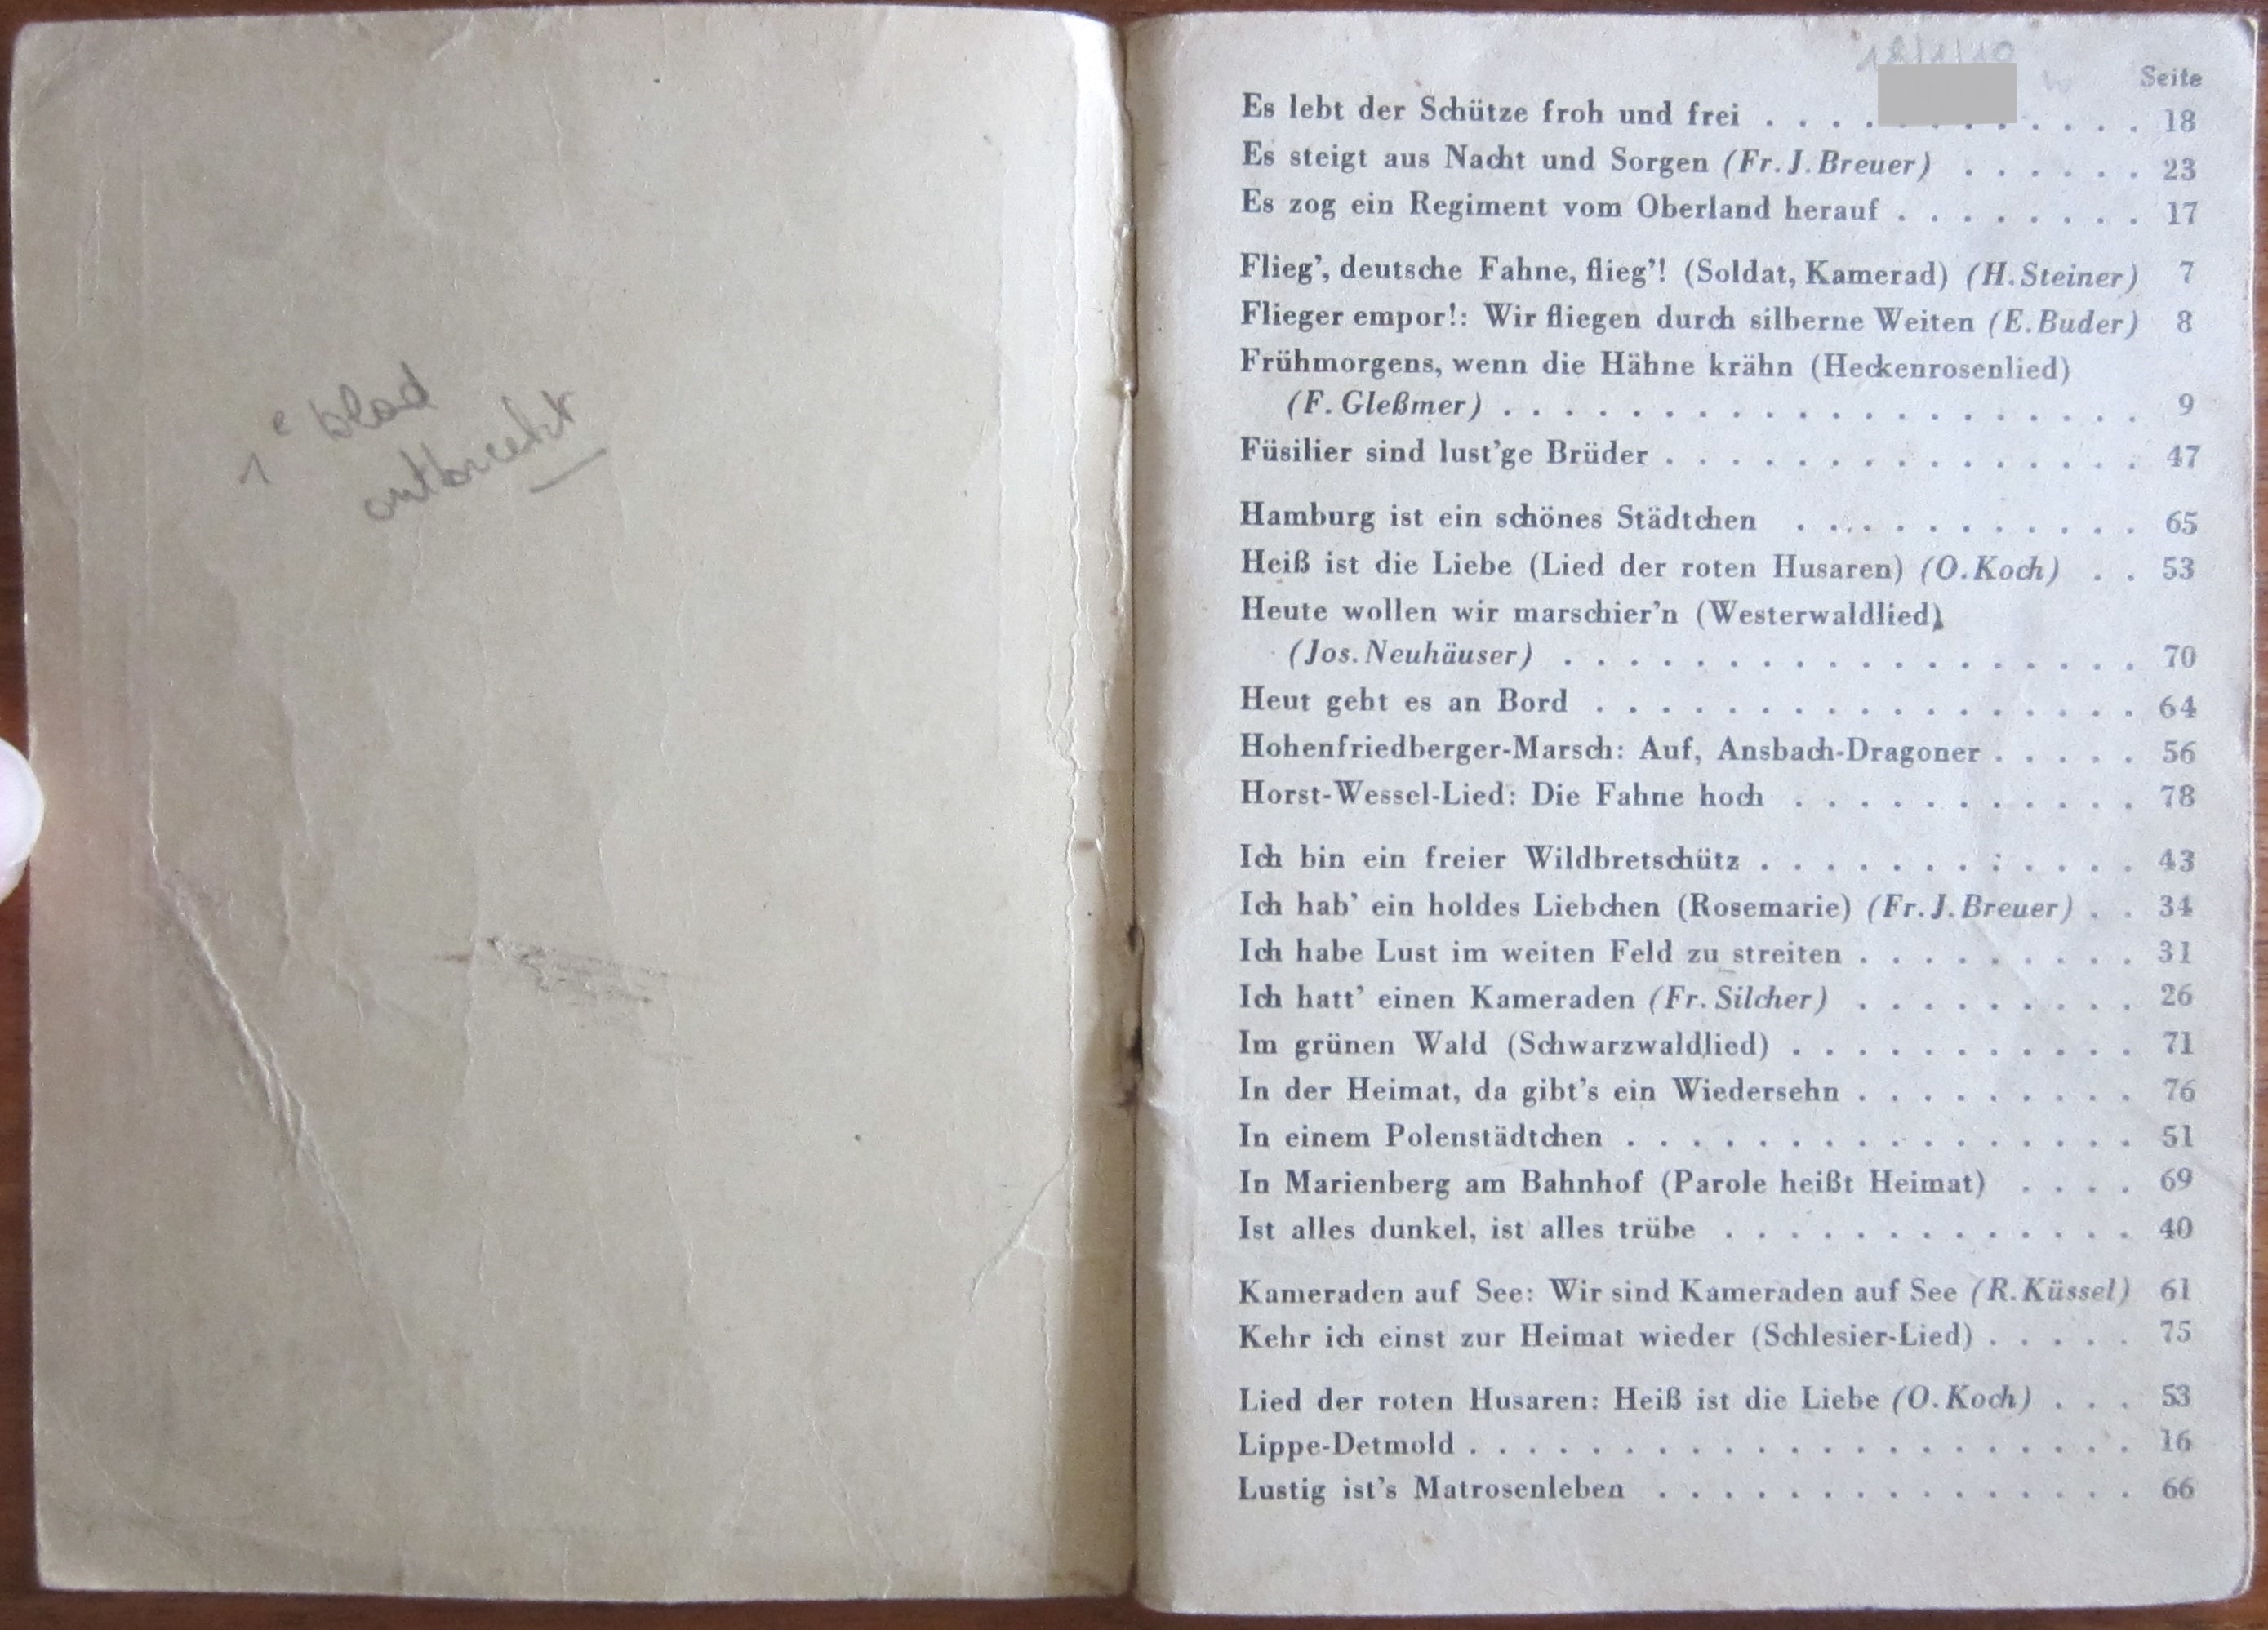 1e blad
ontbreekt
Seite
Es lebt der Schütze froh und frei . . . . . . . . . . . . 18
Es steigt aus Nacht und Sorgen (Fr. J. Breuer) . . . . . . 23
Es zog ein Regiment vom Oberland herauf . . . . . . . . 17
Flieg’, deutsche Fahne, flieg’! (Soldat, Kamerad) (H. Steiner) 7
Flieger empor!: Wir fliegen durch silberne Weiten (E. Buder) 8
Frühmorgens, wenn die Hähne krähn (Heckenrosenlied)
(F. Gleßmer) . . . . . . . . . . . . . . . . . . . . 9
Füsilier sind lust’ge Brüder . . . . . . . . . . . . . . . 47
Hamburg ist ein schönes Städtchen . . . . . . . . . . . 65
Heiß ist die Liebe (Lied der roten Husaren) (O. Koch) . . 53
Heute wollen wir marschier’n (Westerwaldlied)
(Jos. Neuhäuser) . . . . . . . . . . . . . . . . . . 70
Heut geht es an Bord . . . . . . . . . . . . . . . . . 64
Hohenfriedberger-Marsch: Auf, Ansbach-Dragoner . . . . . 56
Horst-Wessel-Lied: Die Fahne hoch . . . . . . . . . . . 78
Ich bin ein freier Wildbretschütz . . . . . . . . . . . . 43
Ich hab’ ein holdes Liebchen (Rosemarie) (Fr. J. Breuer) . . 34
Ich habe Lust im weiten Feld zu streiten . . . . . . . . . 31
Ich hatt’ einen Kameraden (Fr. Silcher) . . . . . . . . . 26
Im grünen Wald (Schwarzwaldlied) . . . . . . . . . . . 71
In der Heimat, da gibt’s ein Wiedersehn . . . . . . . . . 76
In einem Polenstädtchen . . . . . . . . . . . . . . . . 51
In Marienberg am Bahnhof (Parole heißt Heimat) . . . . 69
Ist alles dunkel, ist alles trübe . . . . . . . . . . . . . 40
Kameraden auf See: Wir sind Kameraden auf See (R. Küssel) 61
Kehr ich einst zur Heimat wieder (Schlesier-Lied) . . . . . 75
Lied der roten Husaren: Heiß ist die Liebe (O. Koch) . . . 53
Lippe-Detmold . . . . . . . . . . . . . . . . . . . . . 16
Lustig ist’s Matrosenleben . . . . . . . . . . . . . . . 66